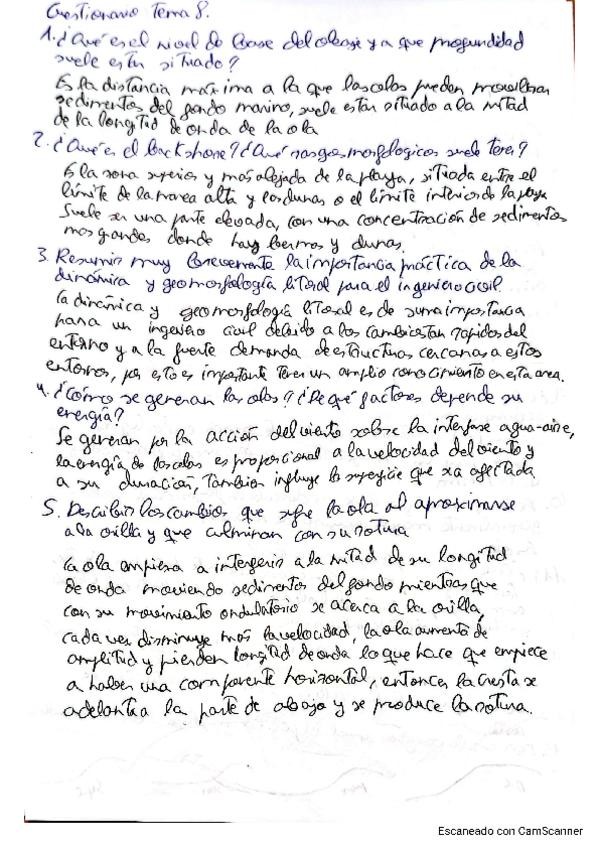 Cuestionario Tema 8.
1. ¿Qué es el nivel de base del oleaje y a que profundidad
suele estar situado?
Es la distancia máxima a la que las olas pueden movilizar
sedimentos del fondo marino, suele estar situado a la mitad
de la longitud de onda de la ola
2. ¿Qué es el backshore? ¿Qué rasgos morfologicos suele tener?
Es la zona superior y mas alejada de la playa, situada entre el
límite de la marea alta y las dunas o el límite interior de la playa
Suele ser una parte elevada, con una concentración de sedimentos
mas grandes, donde hay bermas y dunas.
3. Resumir muy brevemente la importancia práctica de la
dinámica y geomorfología litoral para el ingeniero civil.
La dinámica y geomorfología litoral es de suma importancia
para un ingeniero civil debido a los cambios tan rapidos del
entorno y a la fuerte demanda de estructuras cercanas a estos
entornos, por esto es importante tener un amplio conocimiento en esta area.
4. ¿Cómo se generan las olas? ¿De qué factores depende su
energía?
Se generan por la acción del viento sobre la interfase agua-aire,
y la energía de las olas es proporcional a la velocidad del viento y
a su duración, Tambien influye la superficie que sea afectada
5. Describir los cambios que sufre la ola al aproximarse
a la orilla y que culminan con su rotura
La ola empieza a interferir a la mitad de su longitud
de onda moviendo sedimentos del fondo mientras que
con su movimiento ondulatorio se acerca a la orilla,
cada vez disminuye mas la velocidad, la ola aumenta de
amplitud y pierden longitud de onda lo que hace que empiece
a haber una componente horizontal, entonces la cresta se
adelanta a la parte de abajo y se produce la rotura.
Escaneado con CamScanner